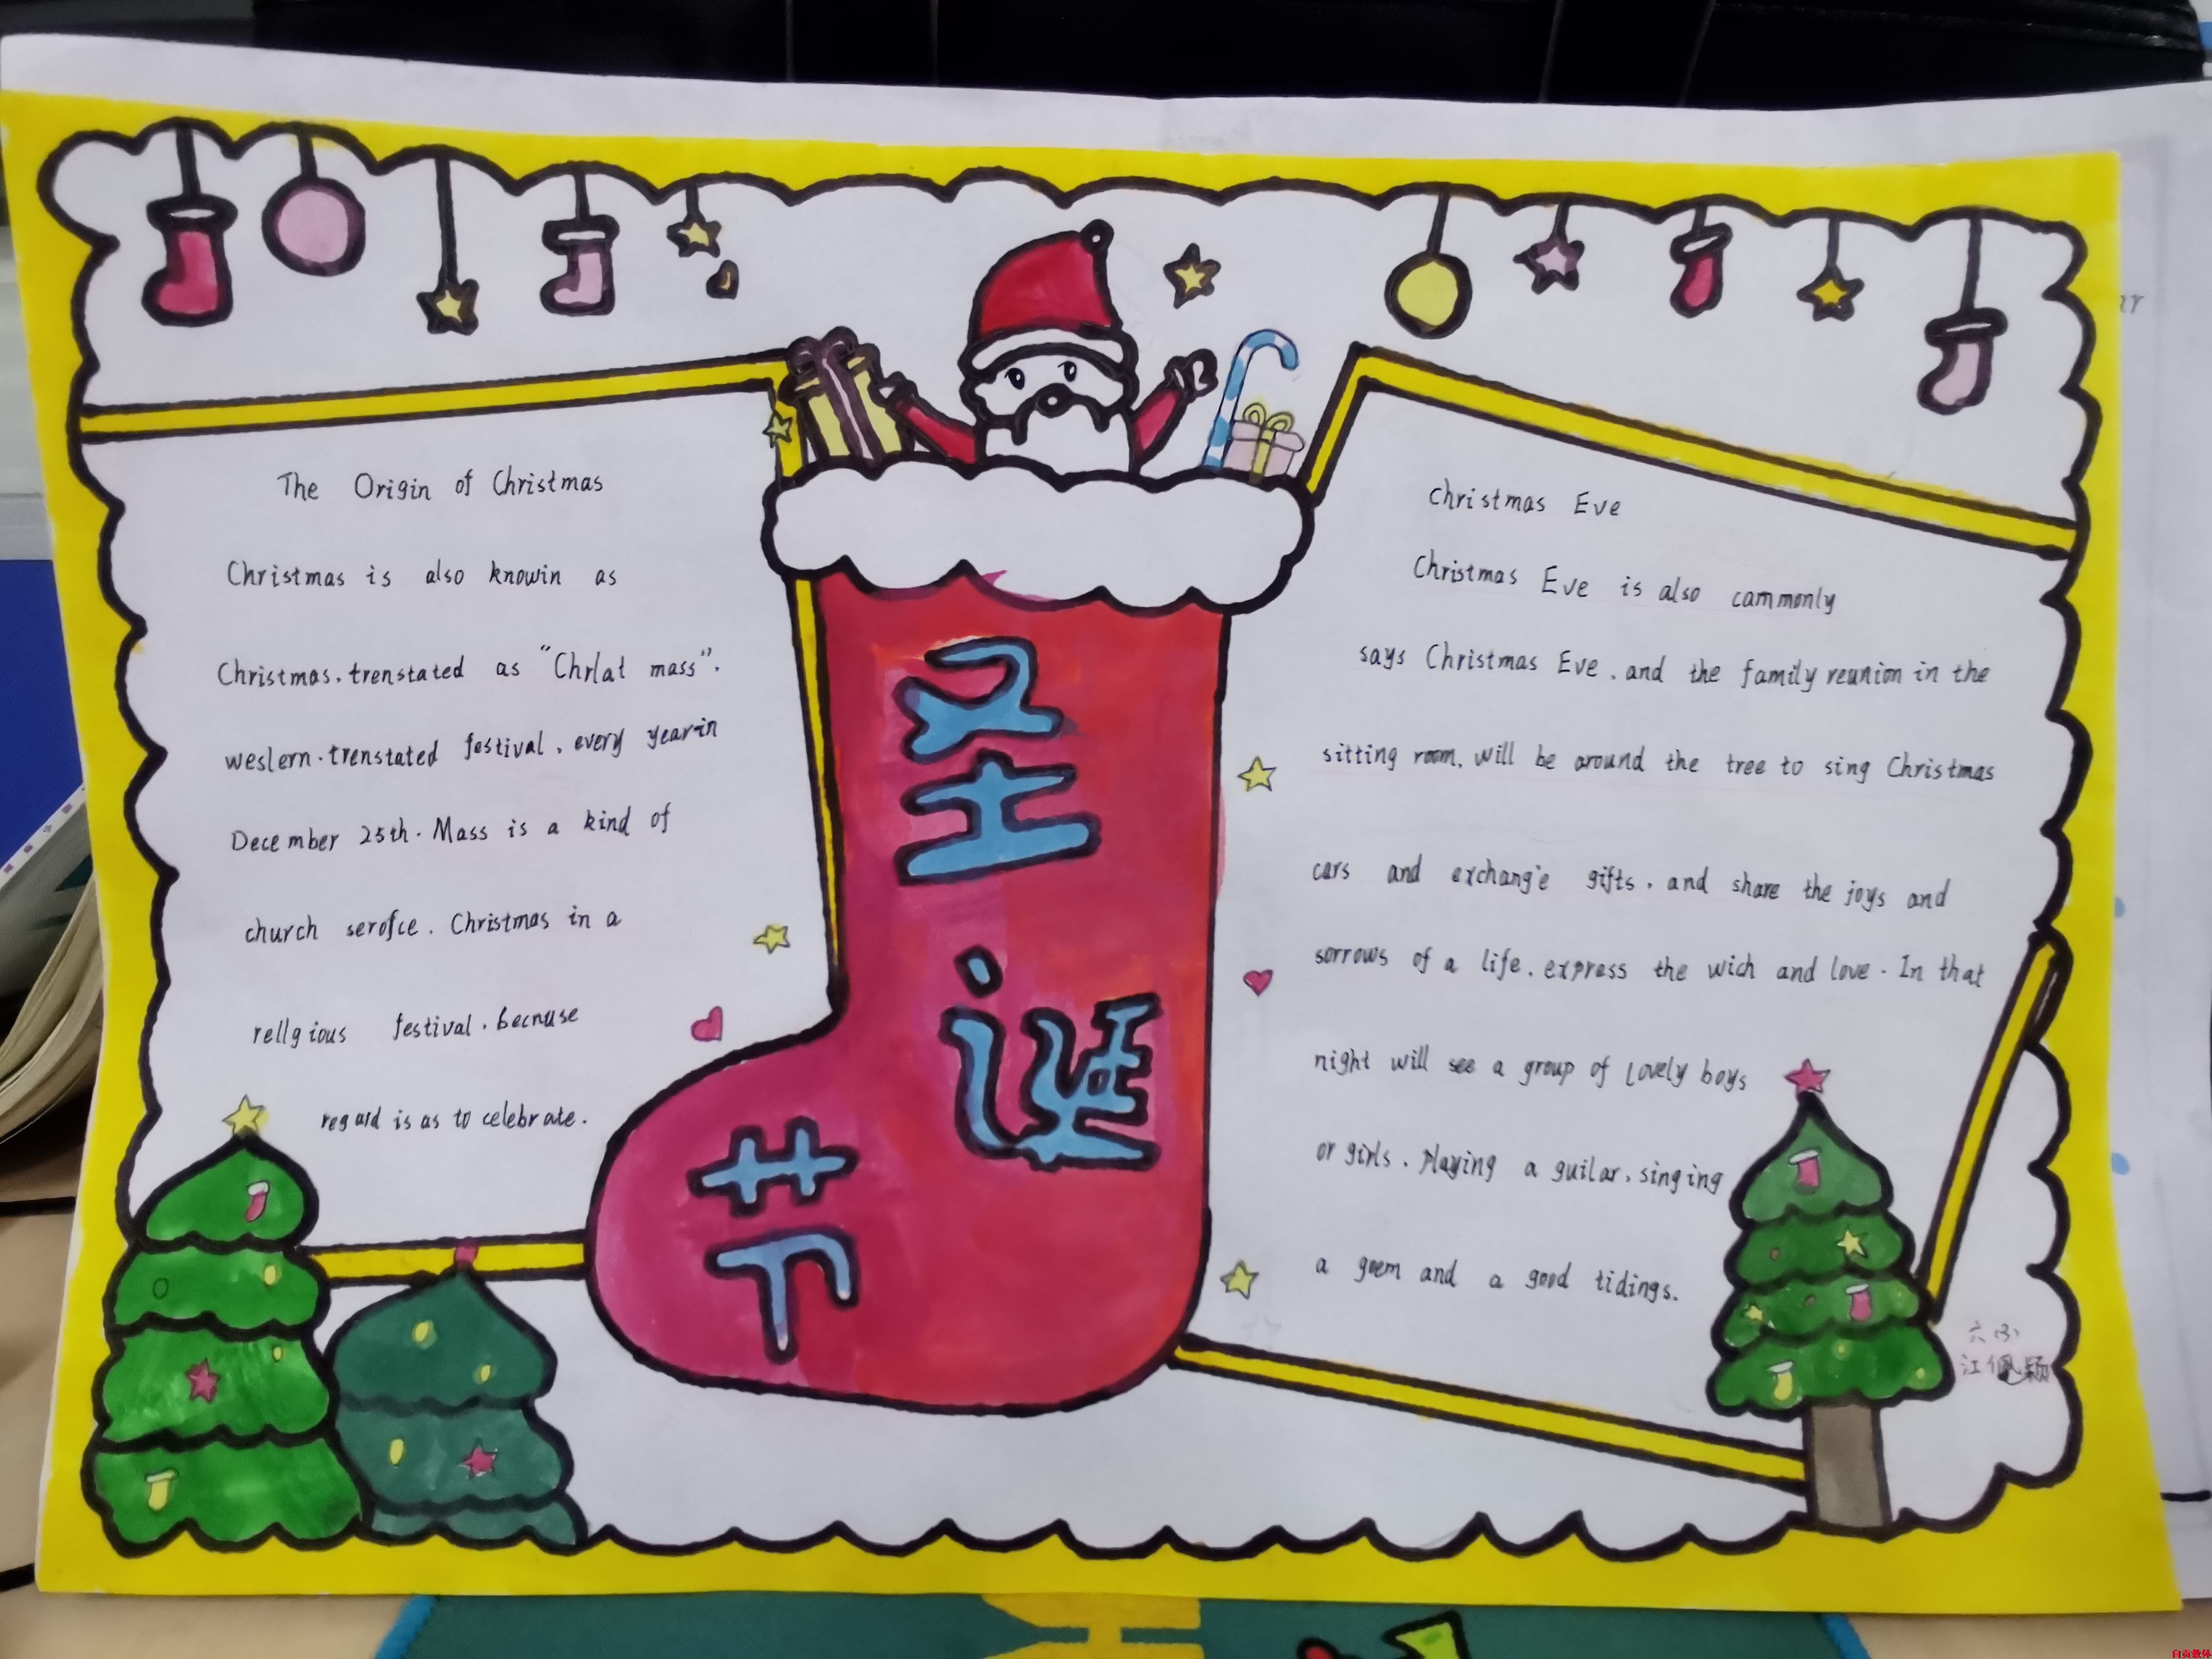 The Origin of Christmas
Christmas is also knowin as
Christmas. trenstated as "Chrlat mass".
weslern. trenstated festival, every yearin
December 25th. Mass is a kind of
church serofce. Christmas in a
rellgious festival. becnuse
regard is as to celebrate.
圣
诞
节
Christmas Eve
Christmas Eve is also cammonly
says Christmas Eve, and the family reunion in the
sitting room, will be around the tree to sing Christmas
cars and exchange gifts, and share the joys and
sorrows of a life, express the wich and love. In that
night will see a group of Lovely boys
or girls. Playing a guilar, singing
a goem and a good tidings.
江佩颖
自贡教体